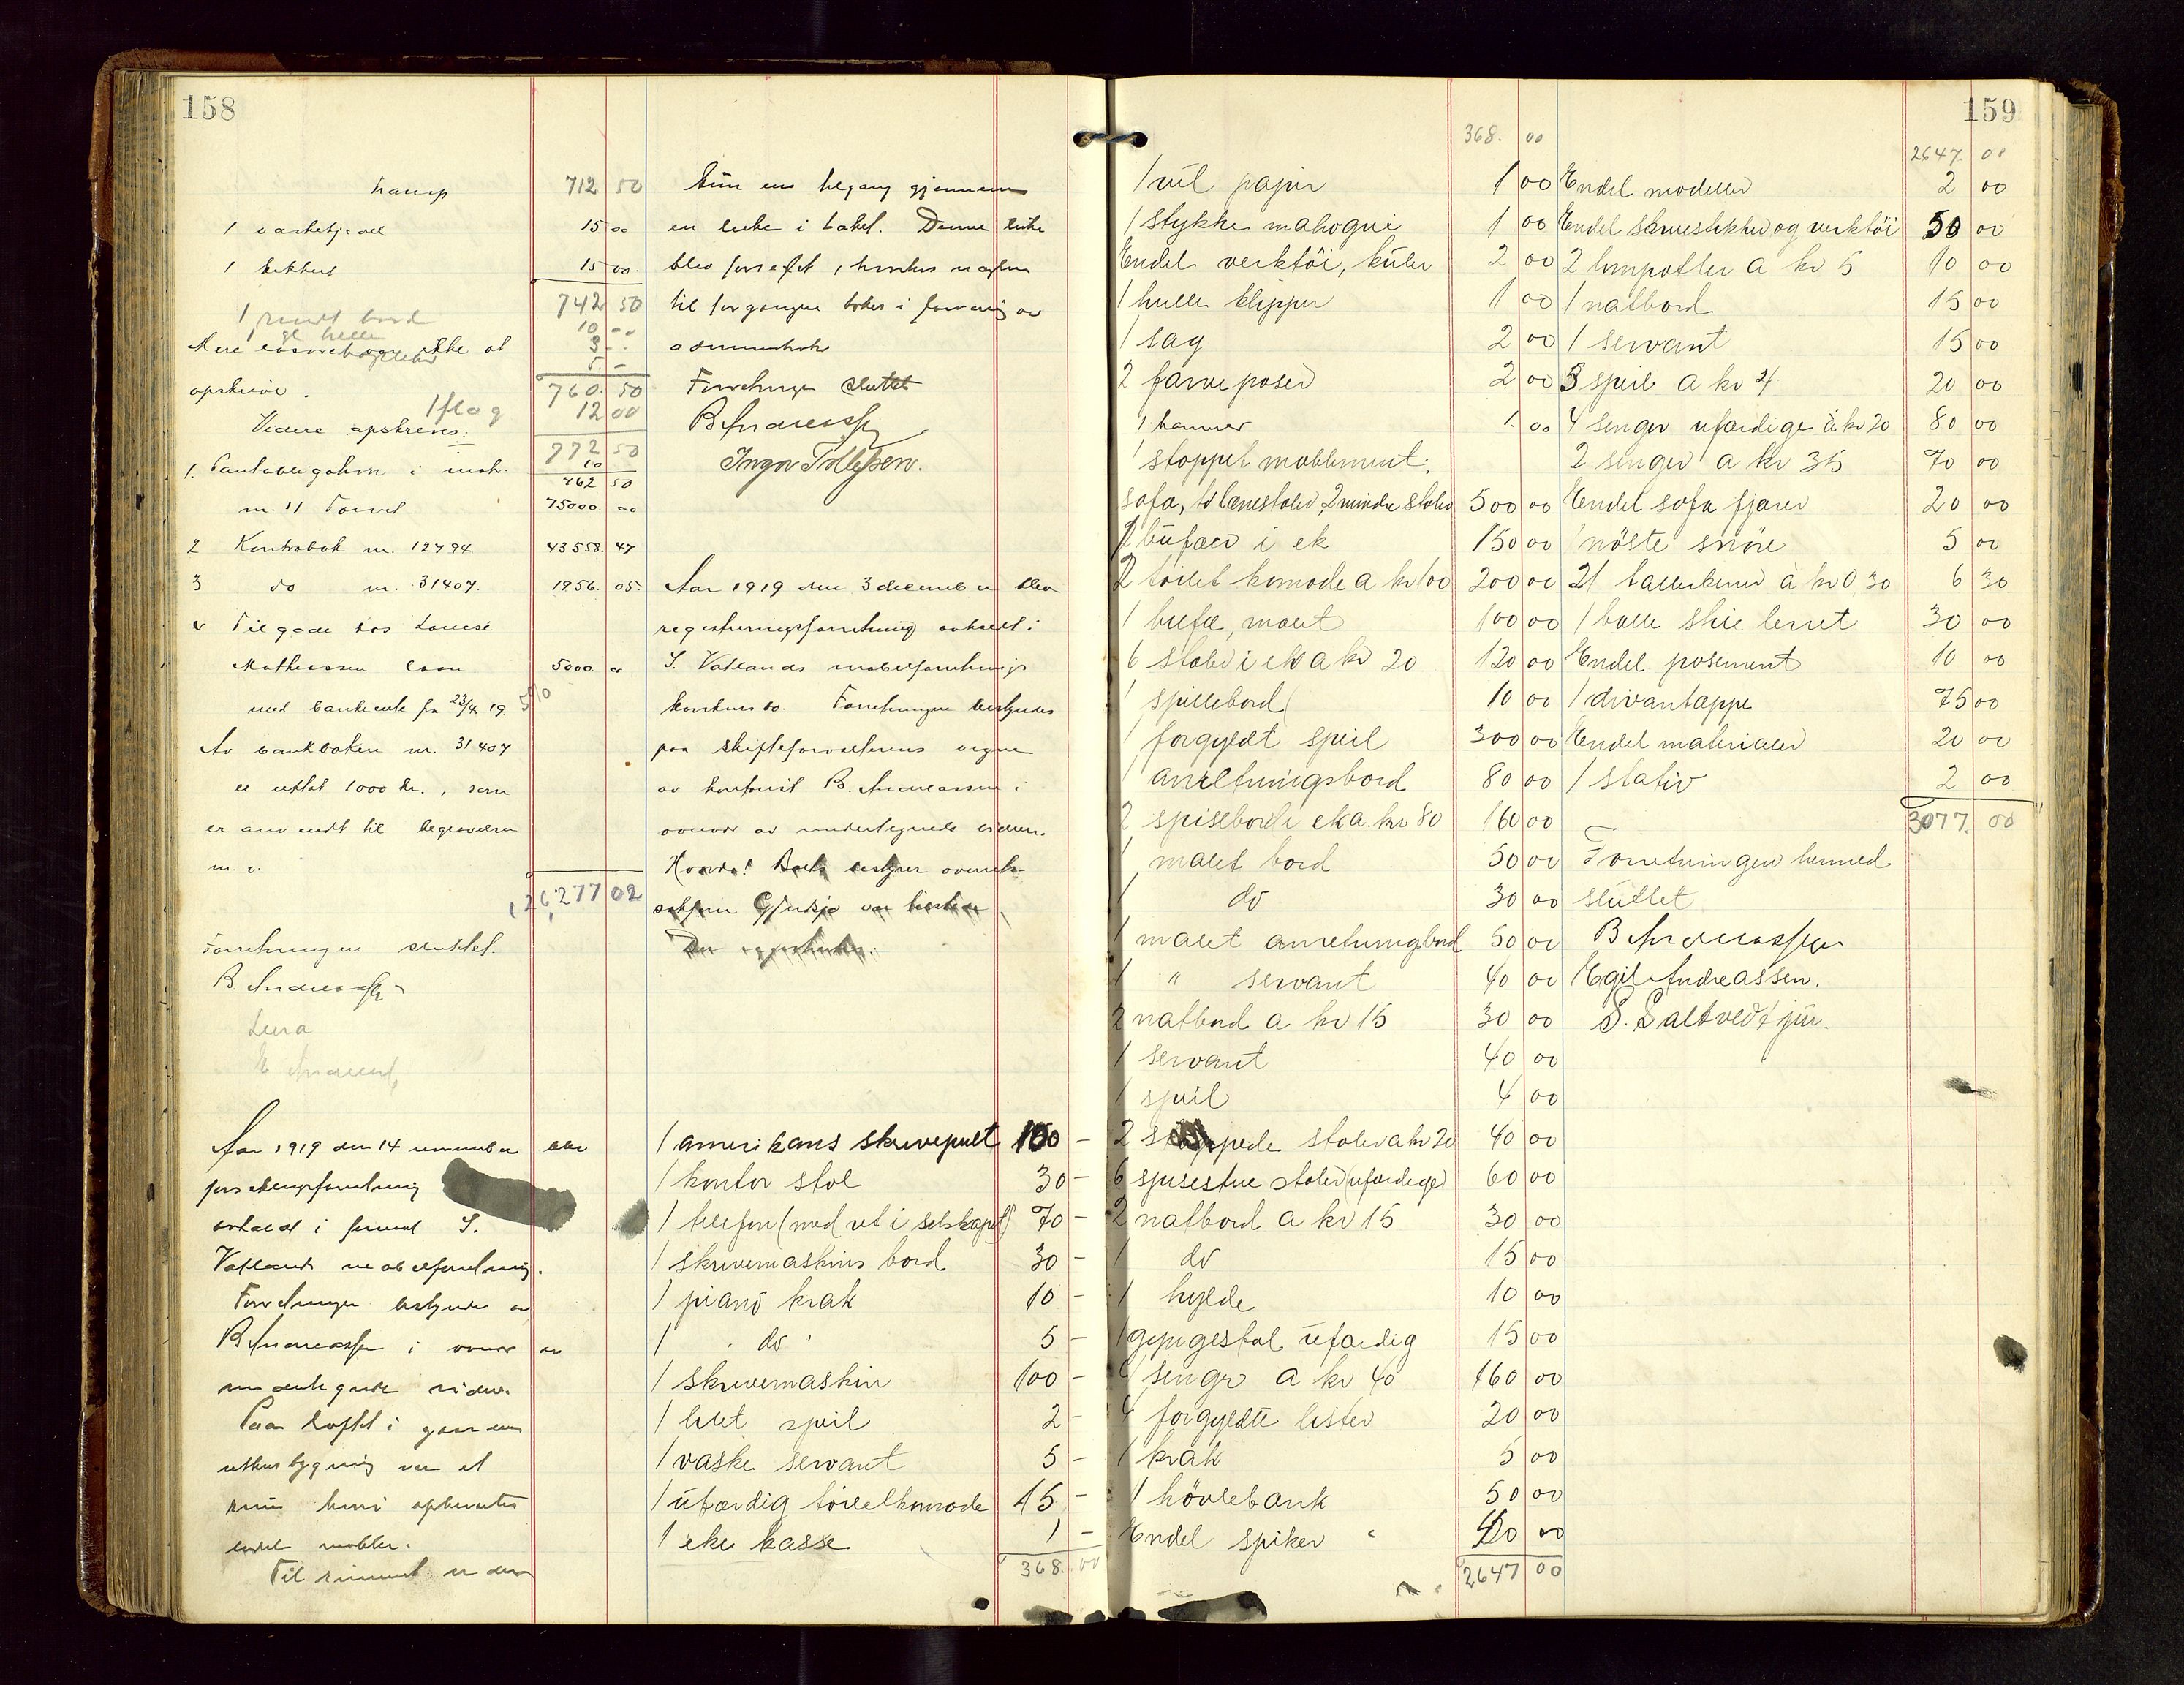 158
transp 712 50
1 vaskekjedel 15 00
1 kikkert 15 00
742 50
1 rundt bord 10 00
Mere løsøre ikke at
opskrive. 760. 50
1 flag 12 00
Videre opskreves:
772 50
10
1. Pantobligation i matr. 762 50
m. 11 Torvet 75000 00
2 Kontrabok nr. 12794 43558. 47
3 do nr. 31407. 1956. 05.
4 Tilgode hos Louise
Mathiassen 5000 00
med bankrente fra 23/4 19. 5%
Av bankboken nr. 31407
er uttat 1000 kr., som
er anvendt til begravelsen
m. v.
126,277 02
Forretningen sluttet.
B. Andreassen
Aar 1919 den 14 november blev
forseglingsforretning
avholdt i firmaet S.
Vatlands møbelforretning.
Forretningen bestyredes av
B. Andreassen i overvær av
undertegnede vidner.
Paa loftet i gaardens
uthusbygning var et
rum hvori opbevartes
endel møbler.
Til rummet er der
kun en tilgang gjennem
en luke i taket. Denne luke
blev forseglet, hvorhos nøglen
til forgangen tokes i forvaring av
Forretningen sluttet
B Andreassen
Inga Tollefsen.
Aar 1919 den 3 december blev
registreringsforretning avholdt i
S. Vatlands møbelforretnings
konkursbo. Forretningen bestyredes
paa skifteforvalterens vegne
av kontorist B. Andreassen i
overvær av undertegnede vidner.
1 amerikans skrivepult 100 -
1 kontor stol 30 -
1 telefon (med ret i selskapet) 70 -
1 skrivemaskins bord 30 -
1 piano krak 10 -
1 do 5 -
1 skrivemaskin 100 -
1 litet speil 2 -
1 vaske servant 5 -
1 ufærdig toiletkomode 15 -
1 eke kasse 1 -
368. 00
159
368. 00
1 rul papir 1 00
1 stykke mahogni 1 00
Endel verktöi, kuler 2 00
1 hulle klipper 1 00
1 sag 2 00
2 farveposer 2 00
1 hammer 1. 00
1 stoppet møblement:
sofa, to lænestoler, 2 mindre stoler 500 00
1 büfaer i ek 150 00
2 toilet komode a kr 100 200 00
1 bufee, malet 100 00
6 stoler i ek a kr 20 120 00
1 spillebord 10 00
1 forgyldt speil 300 00
1 anretningsbord 80 00
2 spiseborde ek a. kr 80 160 00
1 malet bord 50 00
1 do 30 00
1 malet anretningsbord 50 00
1 " servant 40 00
2 natbord a kr 15 30 00
1 servant 40 00
1 speil 4 00
2 stoppede stoler a kr 20 40 00
6 spisestue stoler (ufærdige) 60 00
2 natbord a kr 15 30 00
1 do 15 00
1 hylde 10 00
1 gyngestol ufærdig 15 00
4 senger a kr 40 160 00
4 forgyldte lister 20 00
1 krak 5 00
1 hövlebank 50 00
Endel spiker 40 00
2647 00
2647. 00
Endel modeller 2 00
Endel skruestikker og verktöi 50 00
2 limpotter a kr 5 10 00
1 natbord 15 00
1 servant 15 00
5 speil a kr 4. 20 00
4 senger ufærdige à kr 20 80 00
2 senger a kr 35 70 00
Endel sofa fjærer 20 00
1 nöste snöre 5 00
21 tallerkener à kr 0.30 6 30
1 balle strie lerret 30 00
Endel posement 10 00
1 divantæppe 75 00
Endel materialer 20 00
1 stativ 2 00
3077. 00
Forretningen hermed
sluttet
B Andreassen
Egil Andreassen.
S. Saltvedt jün.